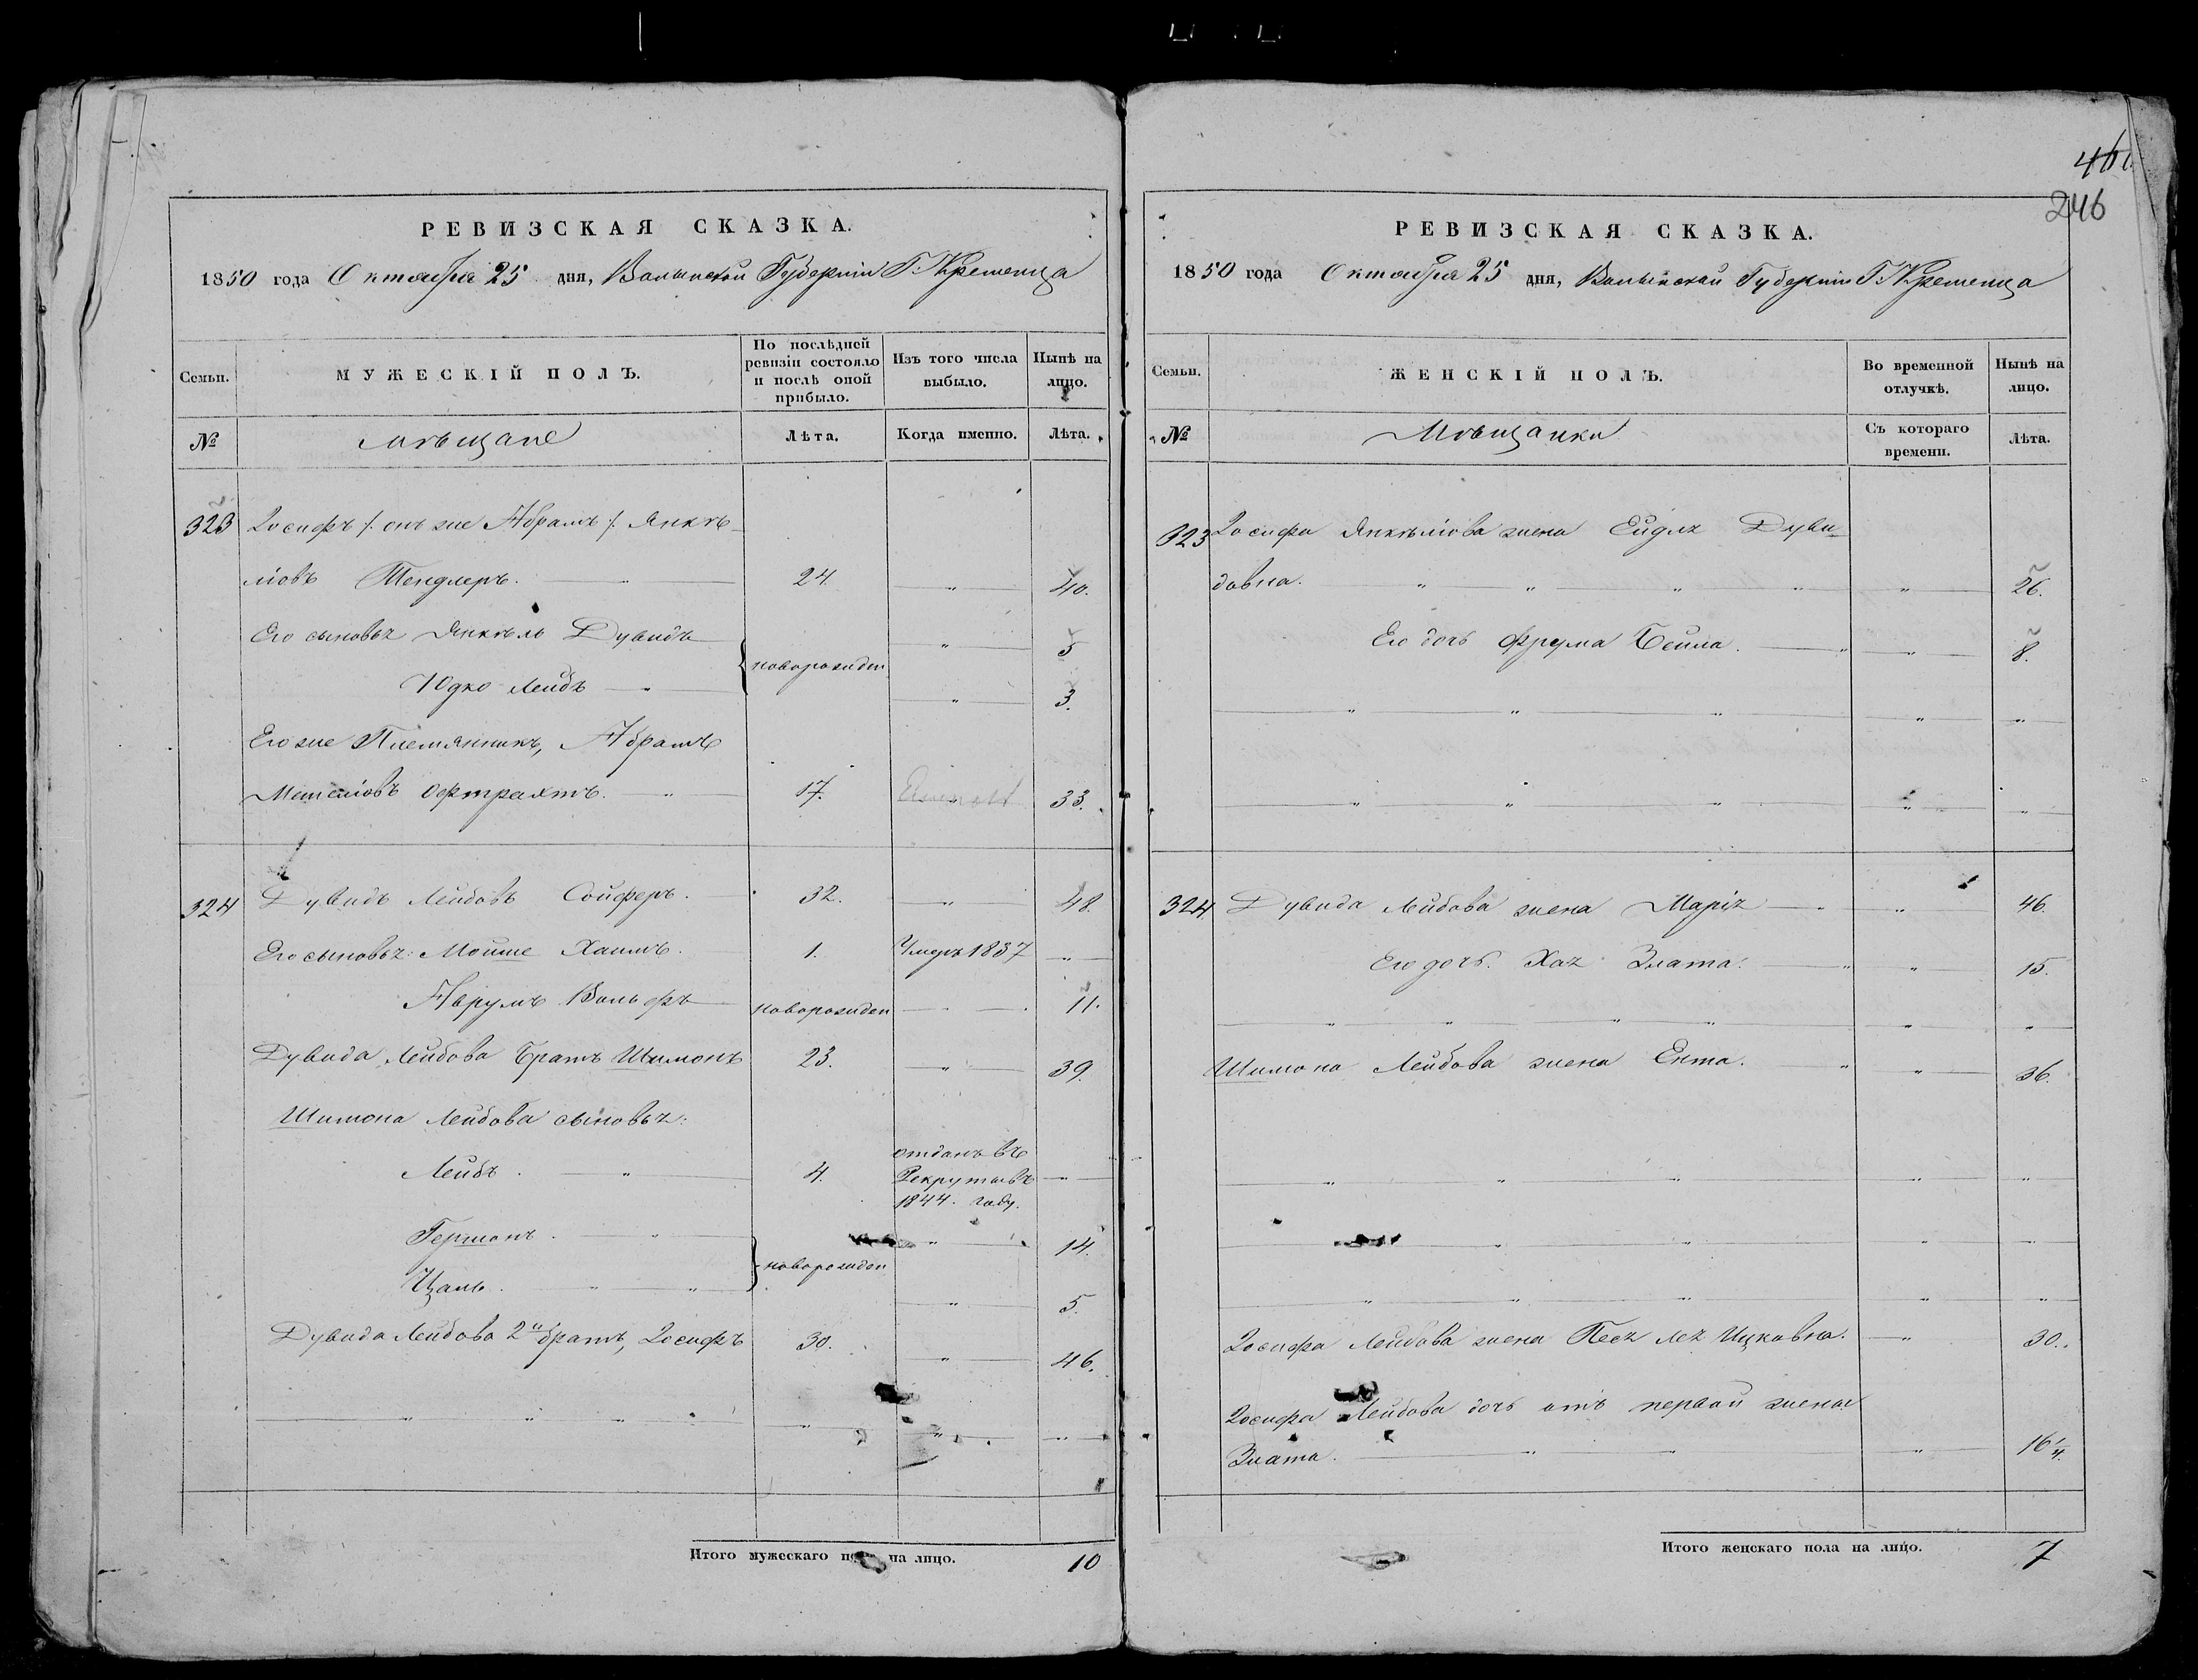 461
246
РЕВИЗСКАЯ СКАЗКА.
1850 года Октября 25 дня, Волынской Губернiи Г. Кременца
Семьи. МУЖЕСКІЙ ПОЛЪ. По послѣдней ревизіи состояло и послѣ оной прибыло. Изъ того числа выбыло. Нынѣ на лицо.
№ Мѣщане Лѣта. Когда именно. Лѣта.
323 Іосифъ /: онъ же Абрамъ :/ Янкѣ-
ліовъ Тендлеръ. 24. " 40.
Его сыновья Янкѣль Дувидъ " 5
новорожден
Юдко Лейбъ " 3.
Его же Племянникъ, Абрамъ
Мошеліовъ Офтрахтъ. 17. " 33.
324 Дувидъ Лейбовъ Сойферъ. 32. " 48.
Его сыновья: Мойше Хаимъ. 1. Умеръ 1837 "
Аврумъ Вольфъ новорожден 11.
Дувида Лейбова Братъ Шимонъ 23. " 39.
Шимона Лейбова сыновья:
Лейбъ. " 4. отданъ въ Рекруты въ 1844. году. "
Гершонъ. " " 14.
новорожден
Цаль. " " " 5.
Дувида Лейбова 2й братъ, Іосифъ 30. " 46.
Итого мужескаго пола на лицо. 10
РЕВИЗСКАЯ СКАЗКА.
1850 года Октября 25 дня, Волынской Губернiи Г. Кременца
Семьи. ЖЕНСКІЙ ПОЛЪ. Во временной отлучкѣ. Нынѣ на лицо.
№ Мѣщанки Съ котораго времени. Лѣта.
323 Іосифа Янкѣліова жена Ейдля Дуви-
довна. " " " " " 26.
Его дочь Фрума Бейла. " " 8.
324 Дувида Лейбова жена Марія " " 46.
Его дочь. Хая Злата. " " 15.
Шимона Лейбова жена Ента. " " 36.
Іосифа Лейбова жена Песя Лея Ицковна. " 30.
Іосифа Лейбова дочь отъ первой жены
Злата. " " " 16 1/4.
Итого женскаго пола на лицо. 7